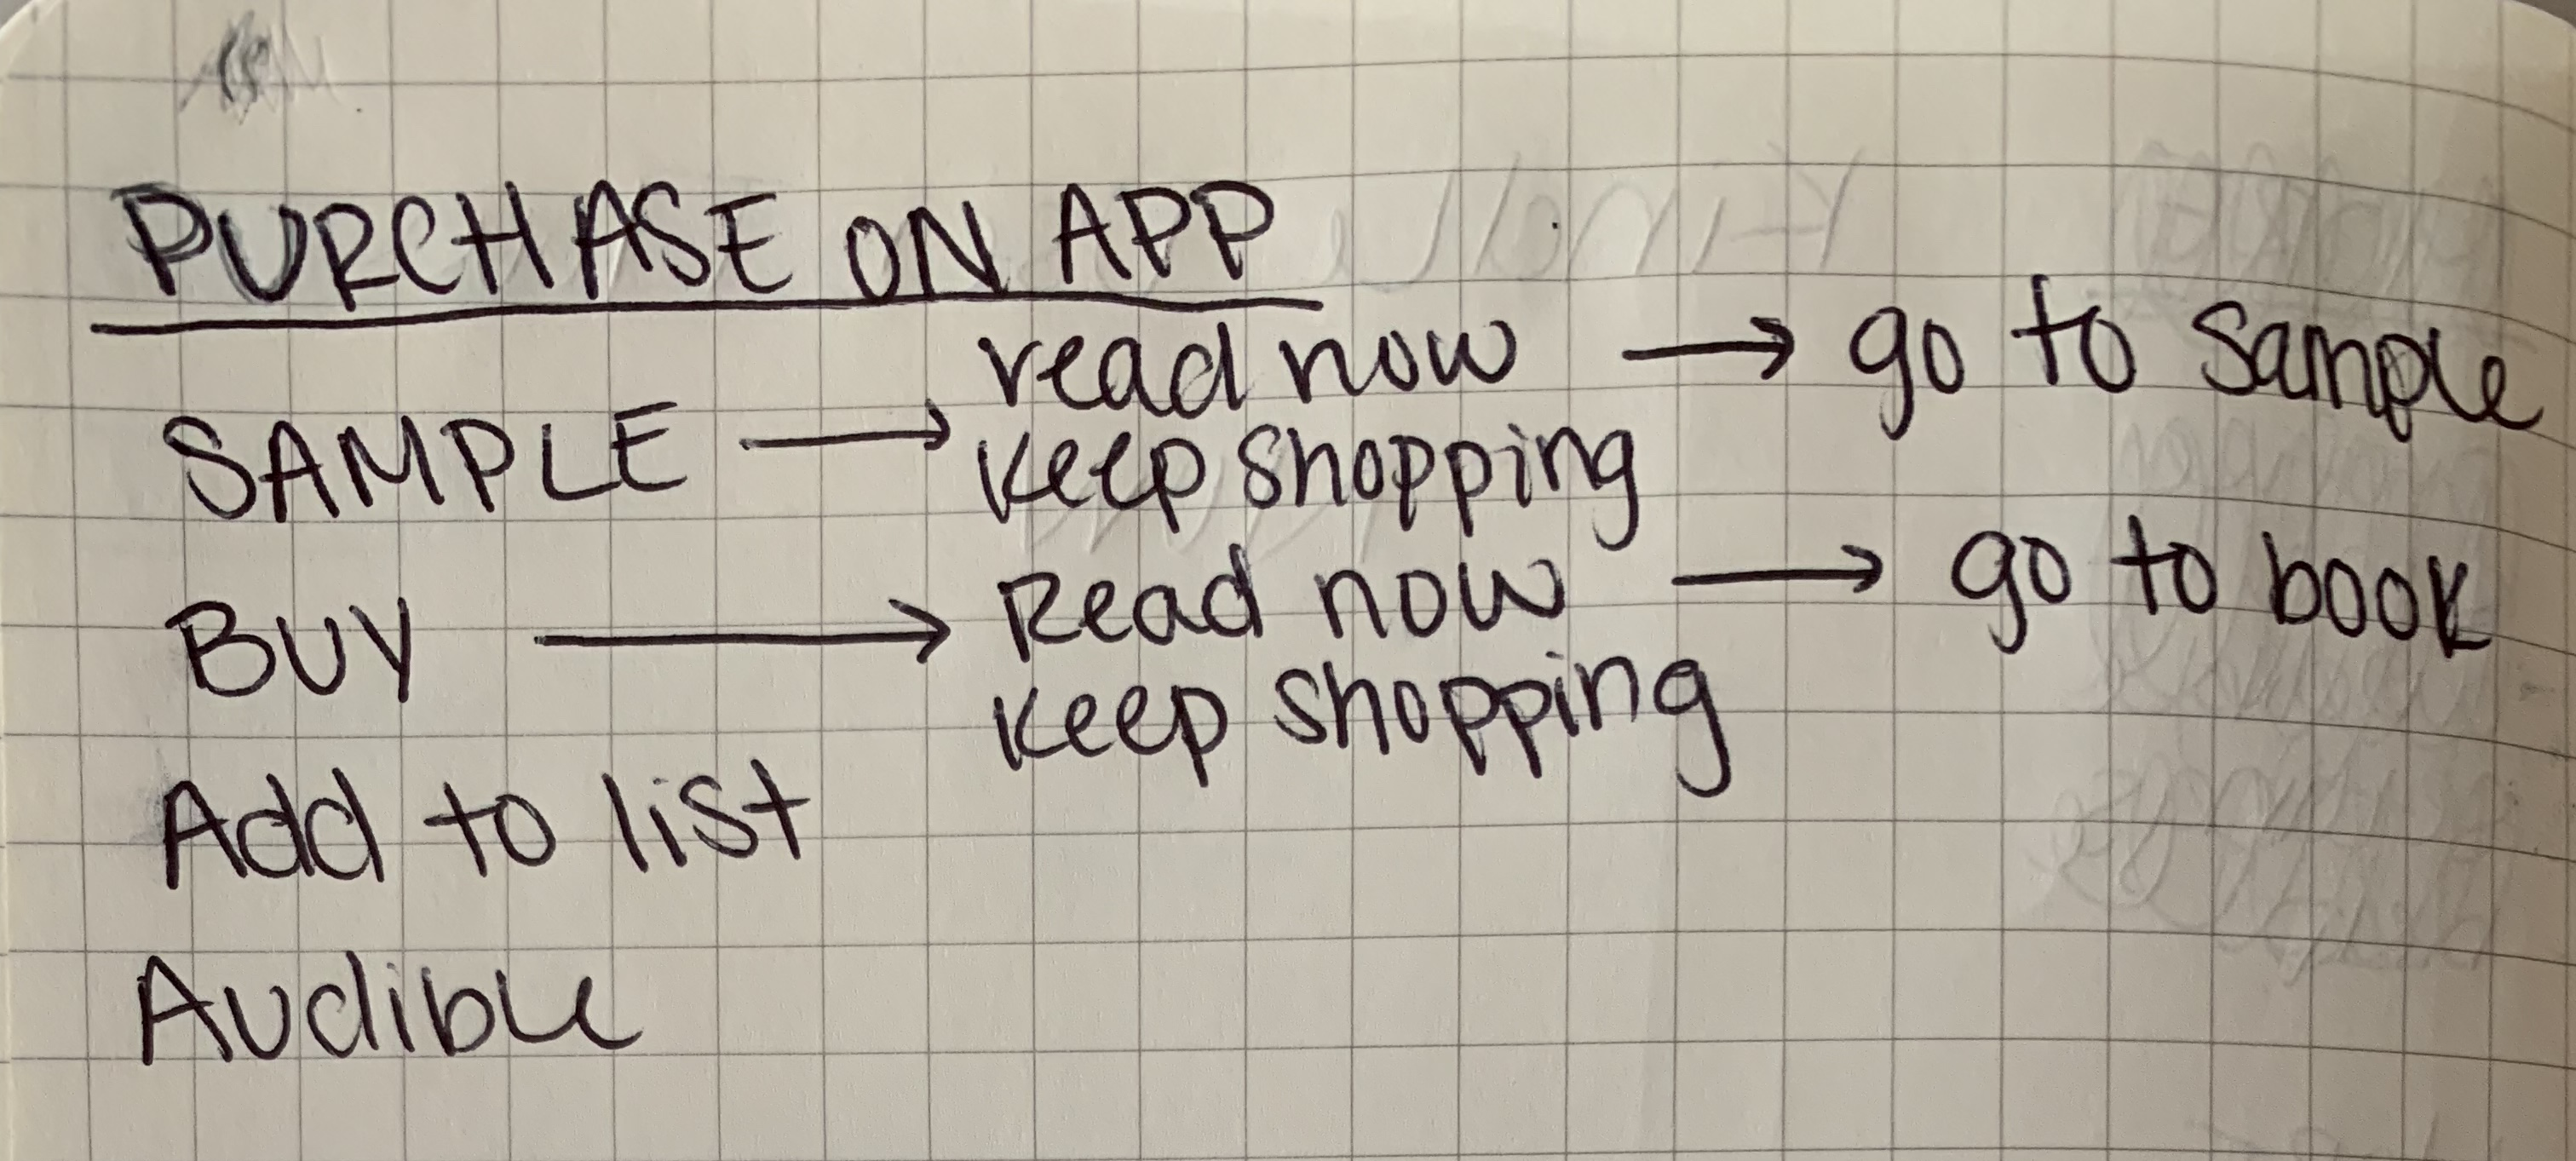 PURCHASE ON APP
read now → go to sample
SAMPLE → keep shopping
Read now → go to book
BUY → keep shopping
Add to list
Audible